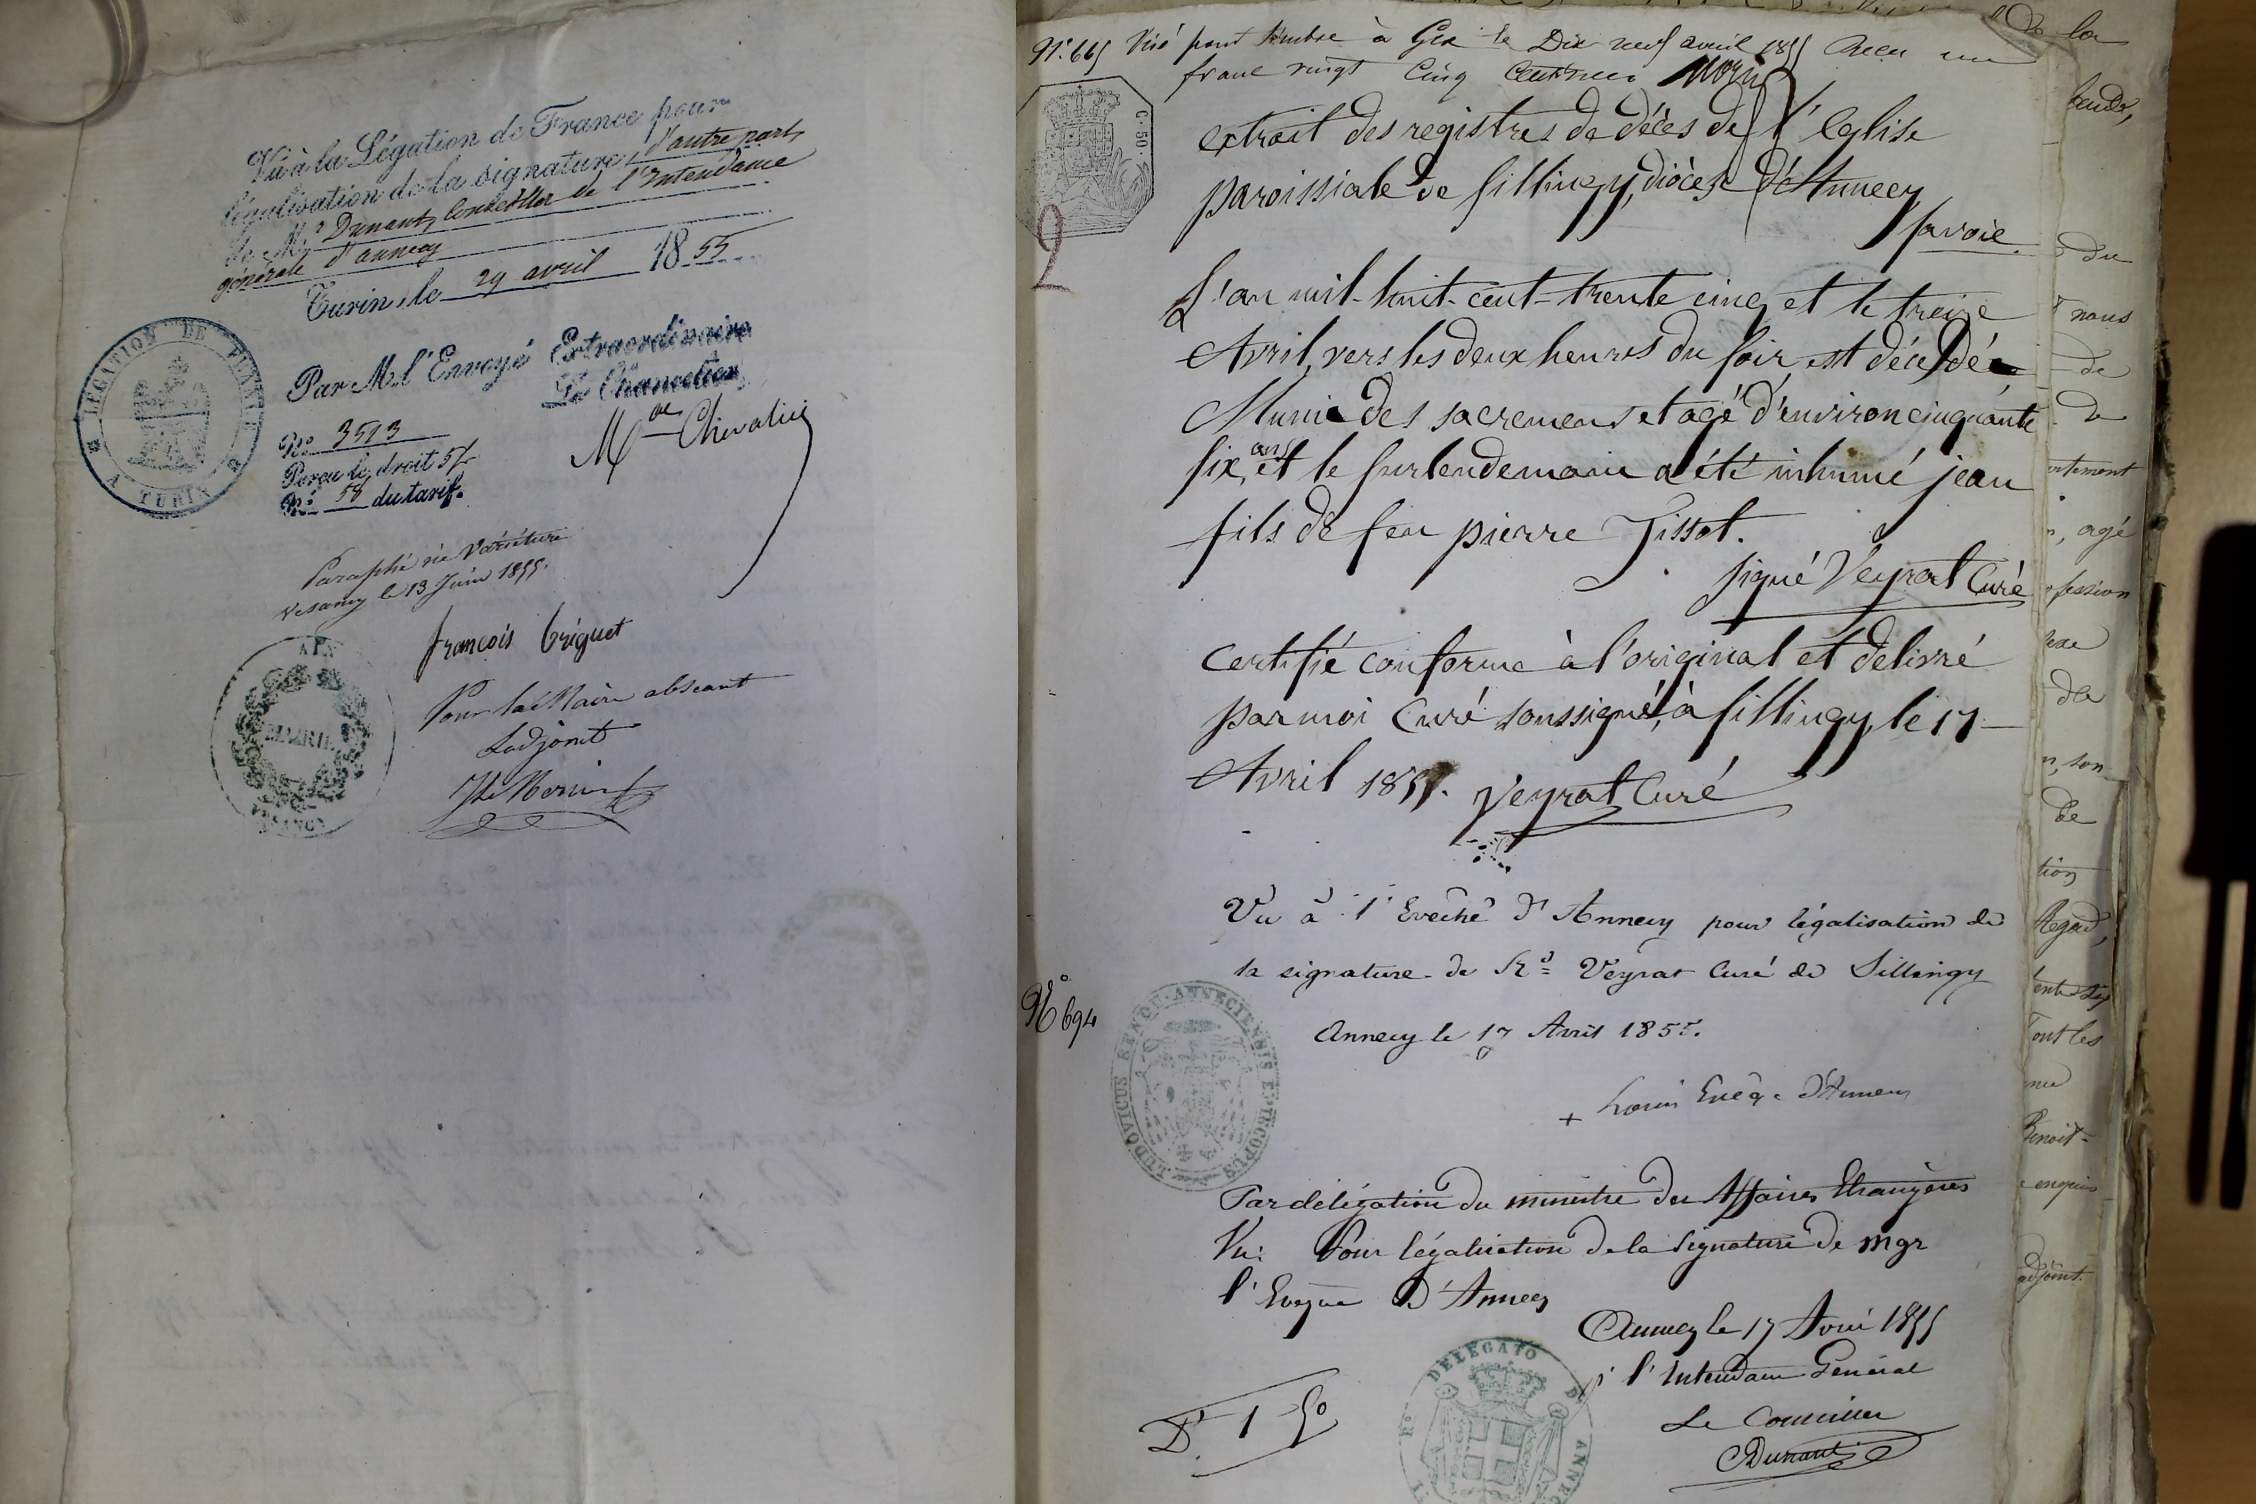 Vu à la Légation de France pour
légalisation de la signature, d'autre part,
de Mr Dunant, Conseiller de l'Intendance
générale d'annecy
Turin, le 29 avril 1855
Par M. l'Envoyé Extraordinaire
Le Chancelier,
Chevalier
LÉGATION DE FRANCE
A TURIN
No 3513
Perçu le droit 5f
No 58 du tarif.
Paraphé ne varietur
Vesancy le 13 Juin 1855.
françois briguet
Pour le Maire abseant
Ladjoint
MAIRIE
VESANCY
No. 665 Visé pour timbre à Gex le Dix neuf avril 1855 Reçu un
franc vingt cinq centimes
C. 50.
2
extrait des registres de décès de l'Eglise
paroissiale de sillingy, diocèse d'Annecy
savoie.
L'an mil-huit-cent-trente cinq et le treize
Avril, vers les deux heures du soir, est décédé
Muni des sacremens et agé d'environ cinquante
six ans et le surlendemain a été inhumé jean
fils de feu pierre Tissot.
signé Veyrat Curé
Certifié conforme à l'original et délivré
par moi Curé soussigné, à sillingy, le 17
Avril 1855. Veyrat Curé
Vu à l'Evêché d'Annecy pour légalisation de
la signature de Rd Veyrat Curé de Sillingy
No 694
Annecy le 17 Avril 1855.
+ Louis Evêq. d'Annecy
LUDOVICUS RENDU ANNECIENSIS EPISCOPUS
Par délégation du ministre des Affaires Etrangères
Vu: Pour légalisation de la signature de mgr
l'Evêque D'Annecy
Annecy le 17 Avril 1855
pr l'Intendant Général
Le Conseiller
Dunant
Dt 1 50
DELEGATO
Ro
ANNEC
de la
du
nous
de
de
rtement
, agé
ofession
de
n, son
de
tion
Regard,
ont les
Benoit-
enquis
adjoint.